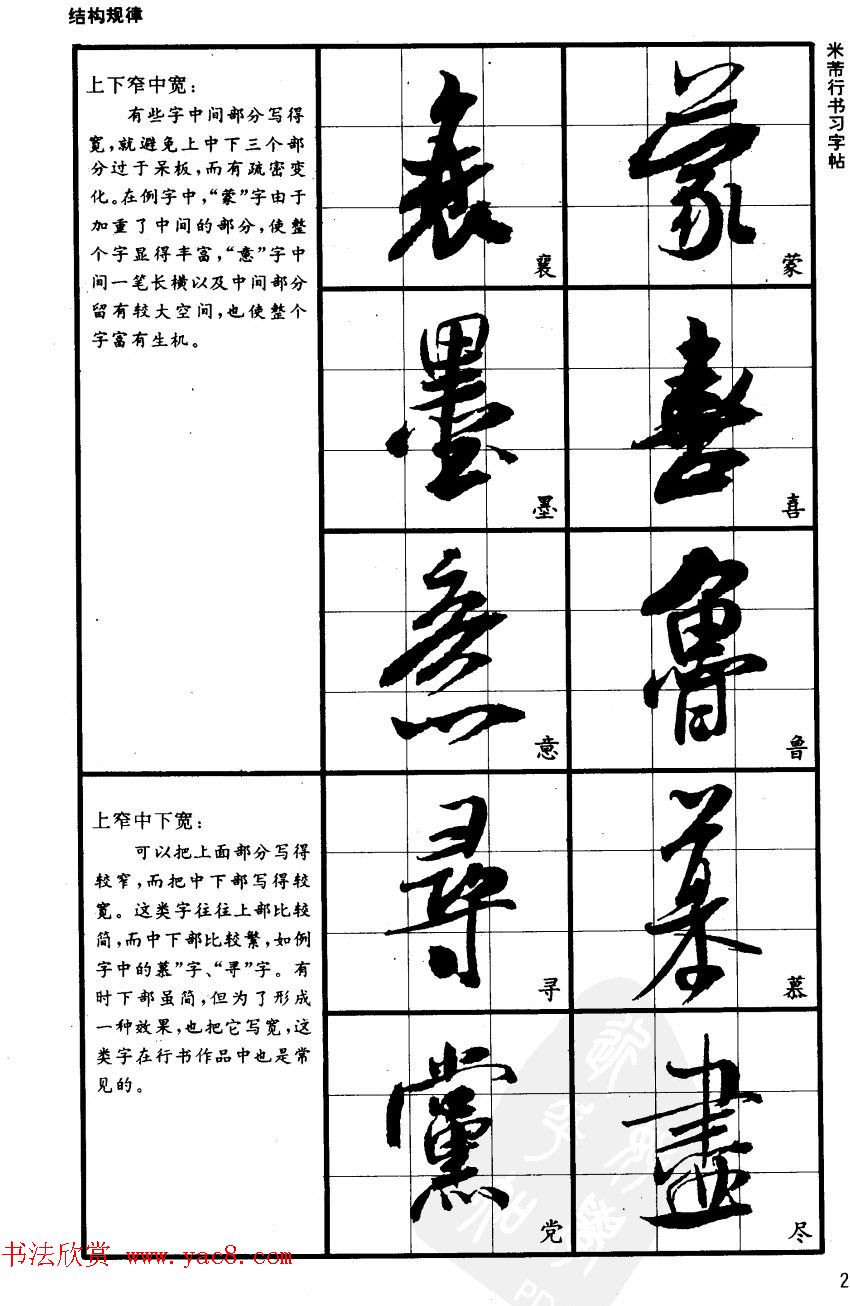 结构规律
米芾行书习字帖
上下窄中宽：
有些字中间部分写得
宽，就避免上中下三个部
分过于呆板，而有疏密变
化。在例字中，“蒙”字由于
加重了中间的部分，使整
个字显得丰富，“意”字中
间一笔长横以及中间部分
留有较大空间，也使整个
字富有生机。
襄
蒙
墨
喜
意
鲁
上窄中下宽：
可以把上面部分写得
较窄，而把中下部写得较
宽。这类字往往上部比较
简，而中下部比较繁，如例
字中的慕”字、“寻”字。有
时下部虽简，但为了形成
一种效果，也把它写宽，这
类字在行书作品中也是常
见的。
寻
慕
党
尽
书法欣赏 www.yac8.com
2